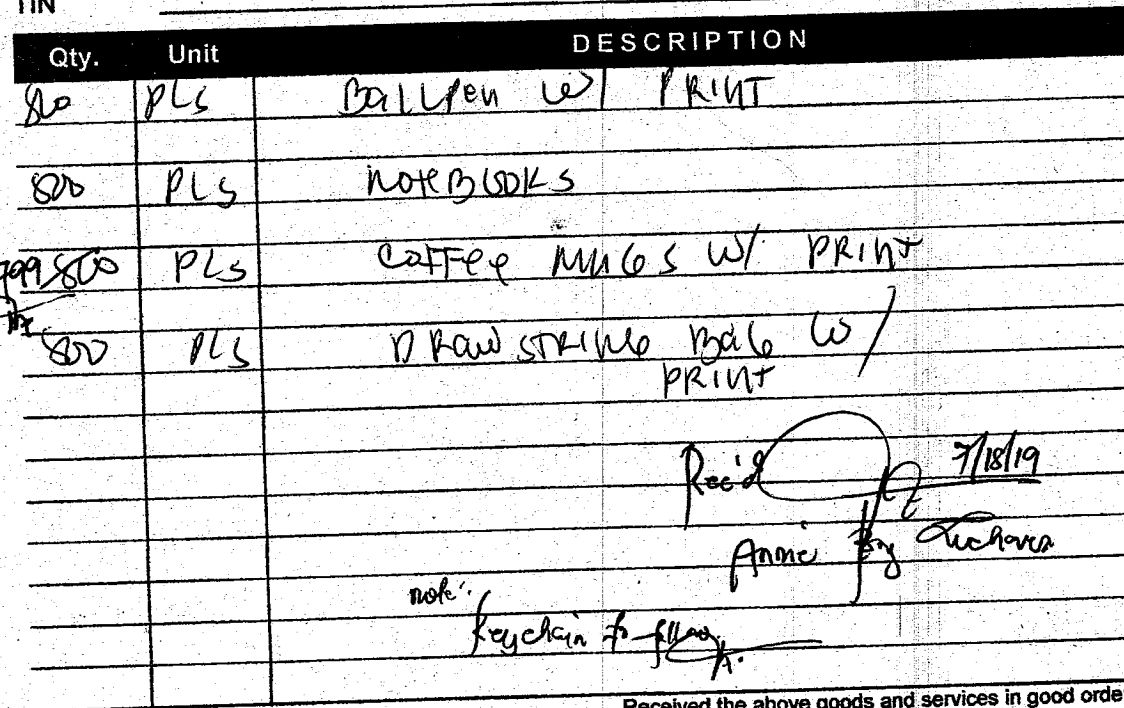 TIN
Qty. Unit DESCRIPTION
80 PCS Ballpen w/ PRINT
800 PCS NOTEBOOKS
799 800 PCS COFFEE MUGS W/ PRINT
800 PCS DRAWSTRING BAG W/
PRINT
Rec'd 7/18/19
Annie
note:
Keychain to follow
Received the above goods and services in good orde